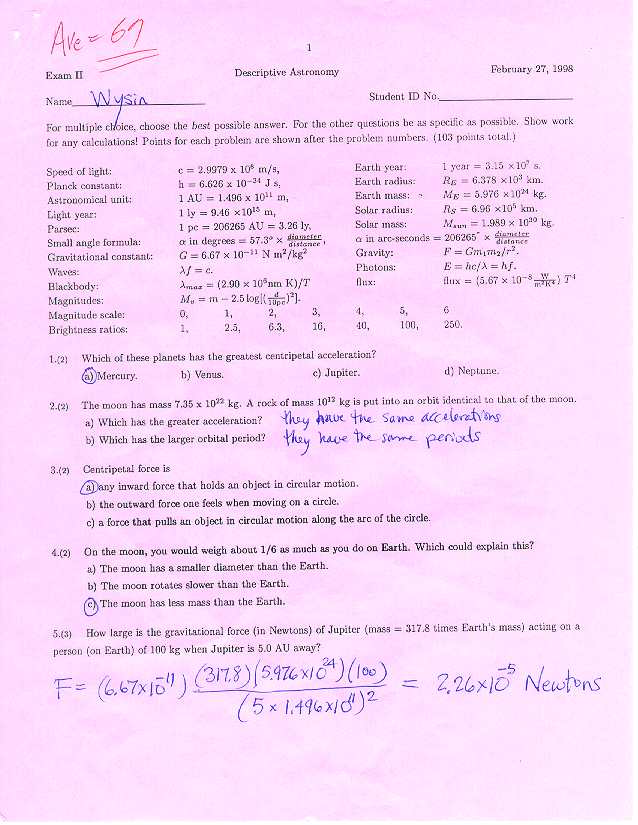 Ave = 67
1
Exam II Descriptive Astronomy February 27, 1998
Name Wysin Student ID No.
For multiple choice, choose the best possible answer. For the other questions be as specific as possible. Show work
for any calculations! Points for each problem are shown after the problem numbers. (103 points total.)
Speed of light: c = 2.9979 x 10⁸ m/s, Earth year: 1 year = 3.15 ×10⁷ s.
Planck constant: h = 6.626 x 10⁻³⁴ J s, Earth radius: R_E = 6.378 ×10³ km.
Astronomical unit: 1 AU = 1.496 x 10¹¹ m, Earth mass: M_E = 5.976 ×10²⁴ kg.
Light year: 1 ly = 9.46 ×10¹⁵ m, Solar radius: R_S = 6.96 ×10⁵ km.
Parsec: 1 pc = 206265 AU = 3.26 ly, Solar mass: M_sun = 1.989 × 10³⁰ kg.
Small angle formula: α in degrees = 57.3° × diameter/distance, α in arc-seconds = 206265" × diameter/distance
Gravitational constant: G = 6.67 x 10⁻¹¹ N m²/kg² Gravity: F = Gm₁m₂/r².
Waves: λf = c. Photons: E = hc/λ = hf.
Blackbody: λ_max = (2.90 × 10⁶nm K)/T flux: flux = (5.67 × 10⁻⁸ W/m²K⁴) T⁴
Magnitudes: M_v = m − 2.5 log[(d/10pc)²].
Magnitude scale: 0, 1, 2, 3, 4, 5, 6
Brightness ratios: 1, 2.5, 6.3, 16, 40, 100, 250.
1.(2) Which of these planets has the greatest centripetal acceleration?
a) Mercury. b) Venus. c) Jupiter. d) Neptune.
2.(2) The moon has mass 7.35 x 10²² kg. A rock of mass 10¹² kg is put into an orbit identical to that of the moon.
a) Which has the greater acceleration? they have the same accelerations
b) Which has the larger orbital period? they have the same periods
3.(2) Centripetal force is
a) any inward force that holds an object in circular motion.
b) the outward force one feels when moving on a circle.
c) a force that pulls an object in circular motion along the arc of the circle.
4.(2) On the moon, you would weigh about 1/6 as much as you do on Earth. Which could explain this?
a) The moon has a smaller diameter than the Earth.
b) The moon rotates slower than the Earth.
c) The moon has less mass than the Earth.
5.(3) How large is the gravitational force (in Newtons) of Jupiter (mass = 317.8 times Earth's mass) acting on a
person (on Earth) of 100 kg when Jupiter is 5.0 AU away?
F = (6.67×10⁻¹¹) (317.8)(5.976×10²⁴)(100) / (5 × 1.496×10¹¹)² = 2.26×10⁻⁵ Newtons